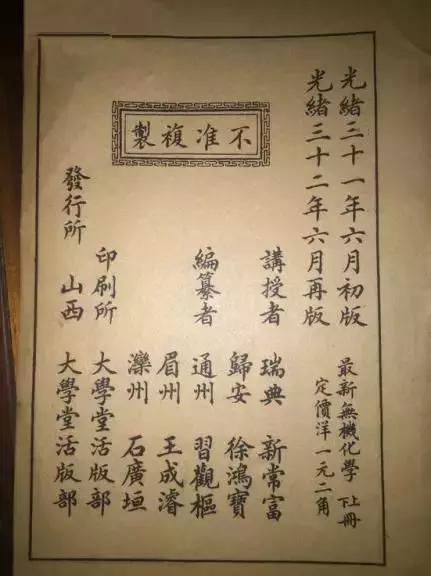 光緒三十一年六月初版
光緒三十二年六月再版
最新無機化學 上下冊
定價洋一元二角
不准複製
講授者 瑞典 新常富
歸安 徐鴻寶
編纂者 通州 習觀樞
眉州 王成濬
灤州 石廣垣
印刷所 大學堂活版部
發行所 山西 大學堂活版部